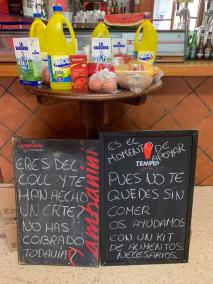 LA VAQUERA
Campanini
ERES DEL
COLL Y TE
HAN HECHO
UN ERTE?
NO HAS
COBRADO
TODAVÍA?
Campanini
ES EL
MOMENTO DE APOYAR
TEMPO
PUES NO TE
QUEDES SIN
COMER
OS AYUDAMOS
CON UN KIT
DE ALIMENTOS
NECESARIOS...